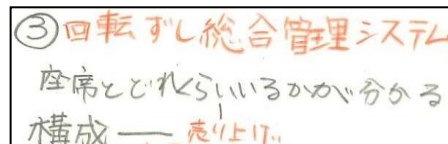 ③回転ずし総合管理システム
座席とどれくらいいるかが分かる
構成 ― 売り上げ